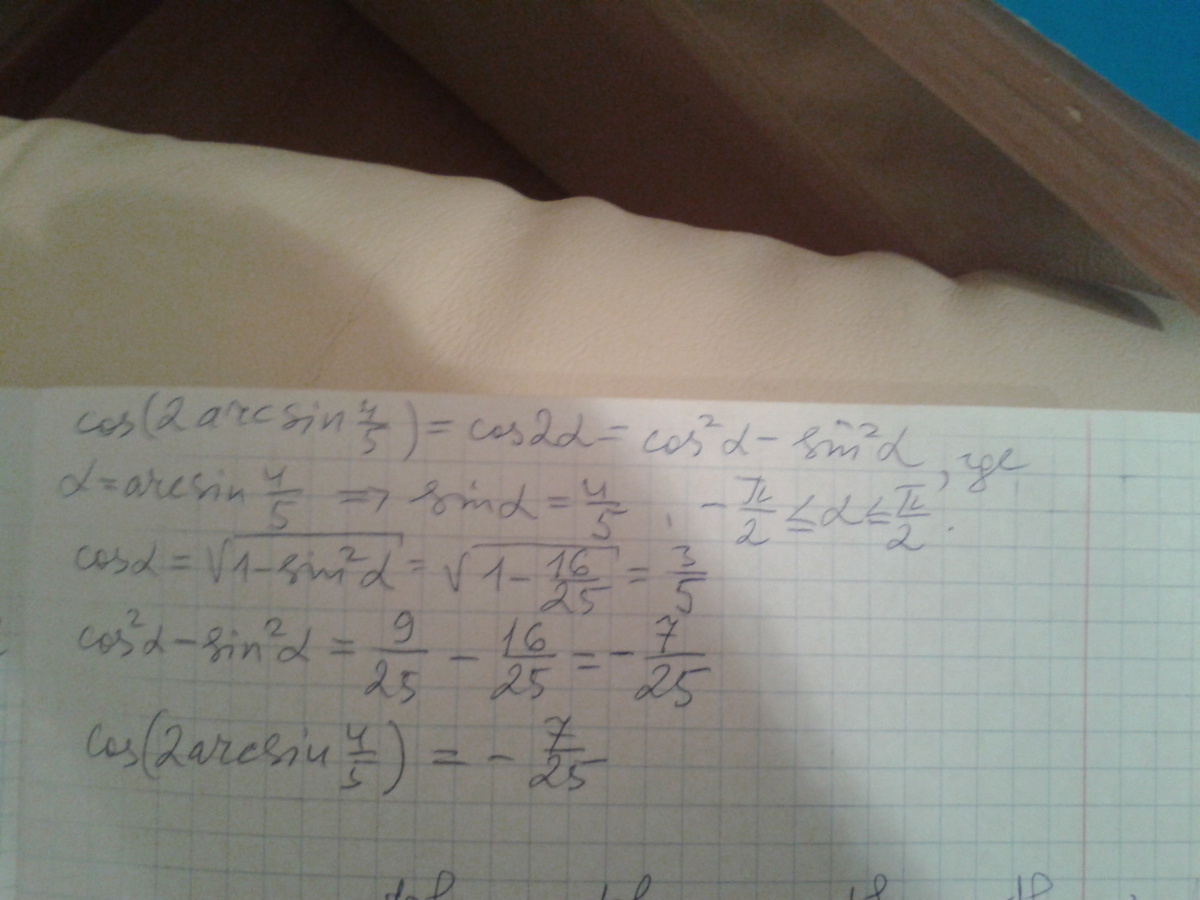 cos(2 arcsin 4/5) = cos2α = cos²α - sin²α, где
α = arcsin 4/5 => sinα = 4/5, -π/2 ≤ α ≤ π/2.
cosα = √(1-sin²α) = √(1 - 16/25) = 3/5
cos²α - sin²α = 9/25 - 16/25 = - 7/25
cos(2arcsin 4/5) = - 7/25